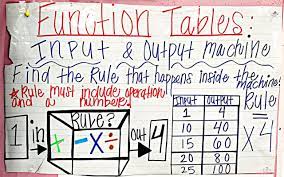 Function Tables:
Input & Output machine
Find the Rule that happens inside the machine!
★ Rule must include operation
and a number!
1 in Rule? + - × ÷ out 4
Input Output
1 4
10 40
15 60
20 80
25 100
Rule
×4